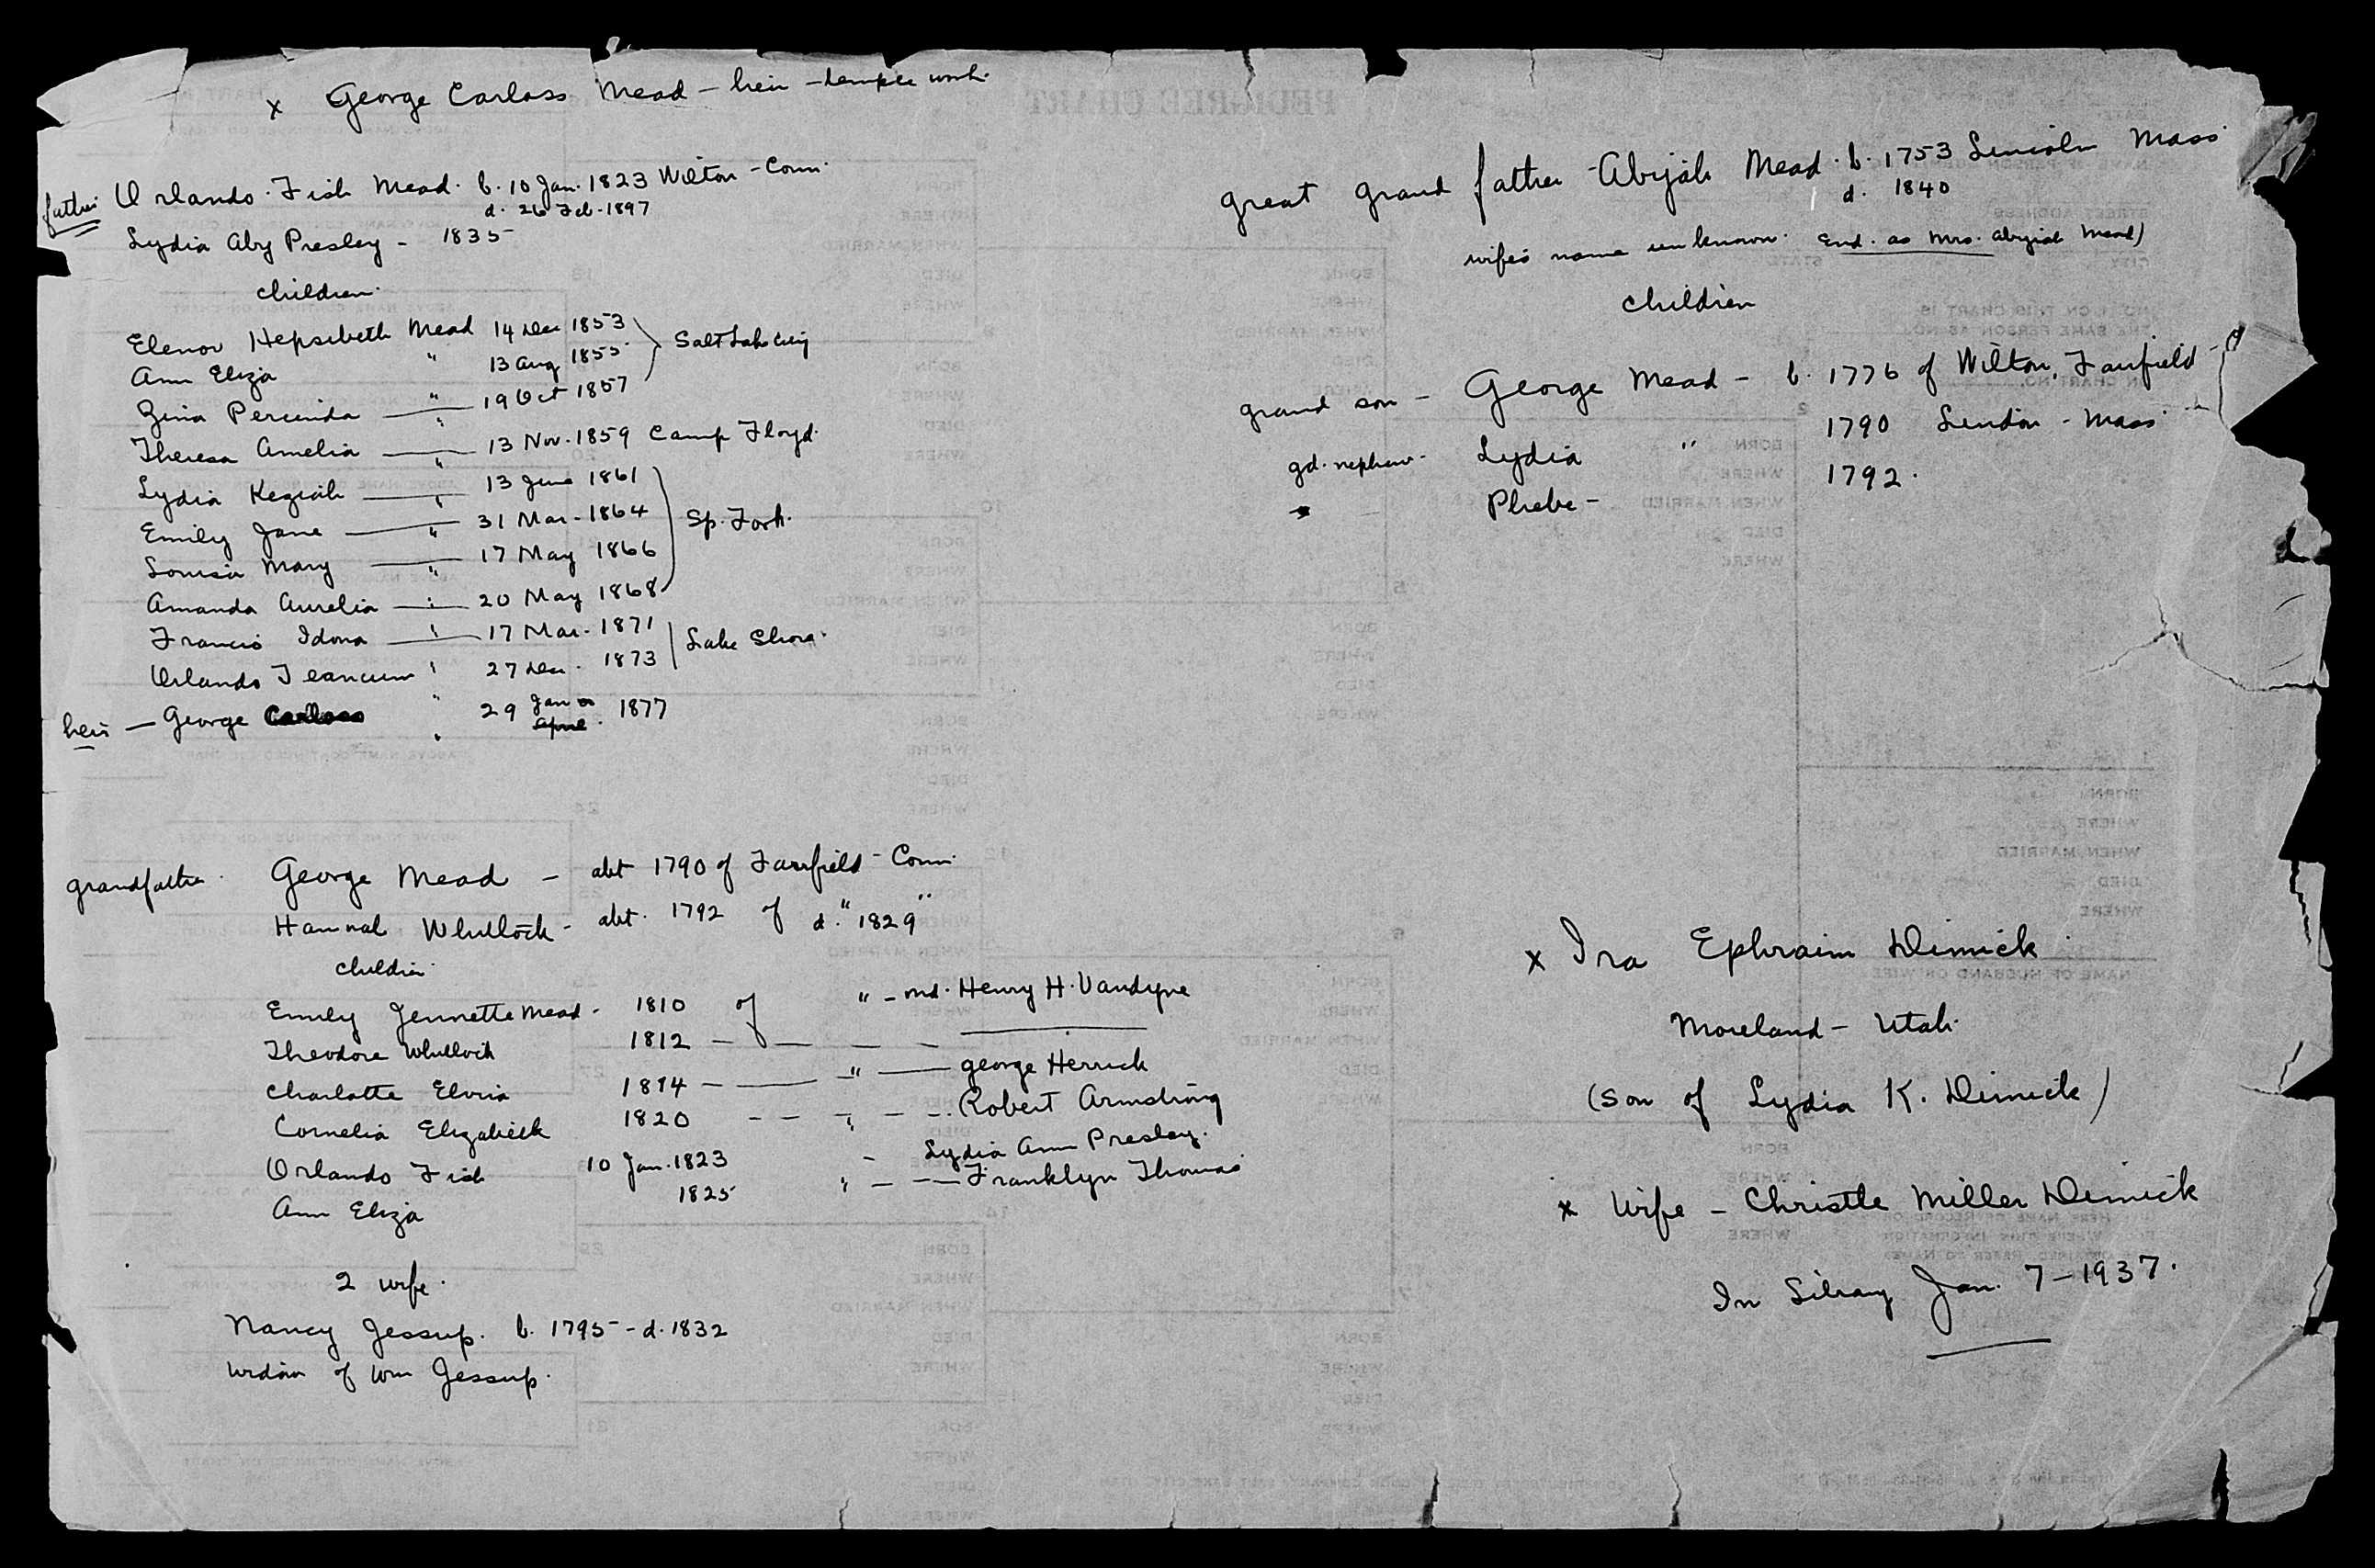 x George Carloss Mead - heir - temple work.
father Orlando Fish Mead. b. 10 Jan. 1823 Wilton - Conn.
d. 26 Feb. 1897
Lydia Aby Presley - 1835
children.
Elenor Hepsibeth Mead 14 Dec 1853
Ann Eliza " 13 Aug 1855
Salt Lake City
Zina Percinda " 19 Oct 1857
Theresa Amelia " 13 Nov. 1859 Camp Floyd.
Lydia Keziah " 13 June 1861
Emily Jane " 31 Mar. 1864
Sp. Fork.
Louisa Mary " 17 May 1866
Amanda Aurelia " 20 May 1868
Francis Idona " 17 Mar. 1871
Lake Shore.
Orlando Teancum " 27 Dec. 1873
heir - George Carloss " 29 Jan or April. 1877
grandfather. George Mead - abt 1790 of Fairfield - Conn.
Hannah Whitlock - abt. 1792 of " "
d. 1829
children
Emily Jennette Mead - 1810 of " - md. Henry H. Vandyne
Theodore Whitlock 1812 -
Charlotte Elvira 1814 - " - George Herrick
Cornelia Elizabeth 1820 - - " - - Robert Armstrong
Orlando Fish 10 Jan. 1823 - Lydia Ann Presley.
Ann Eliza 1825 " - - Franklyn Thomas
2 wife.
Nancy Jessup. b. 1795 - d. 1832
widow of Wm Jessup.
great grand father - Abijah Mead. b. 1753 Lincoln Mass
d. 1840
wife's name unknown. End. as Mrs. Abijah Mead)
children
grand son - George Mead - b. 1776 of Wilton, Fairfield -
gd. nephew - Lydia " 1790 - Mass
Phebe - 1792.
x Ira Ephraim Dimick
Moreland - Utah.
(Son of Lydia K. Dimick)
x Wife - Christle Miller Dimick
In Library Jan. 7 - 1937.